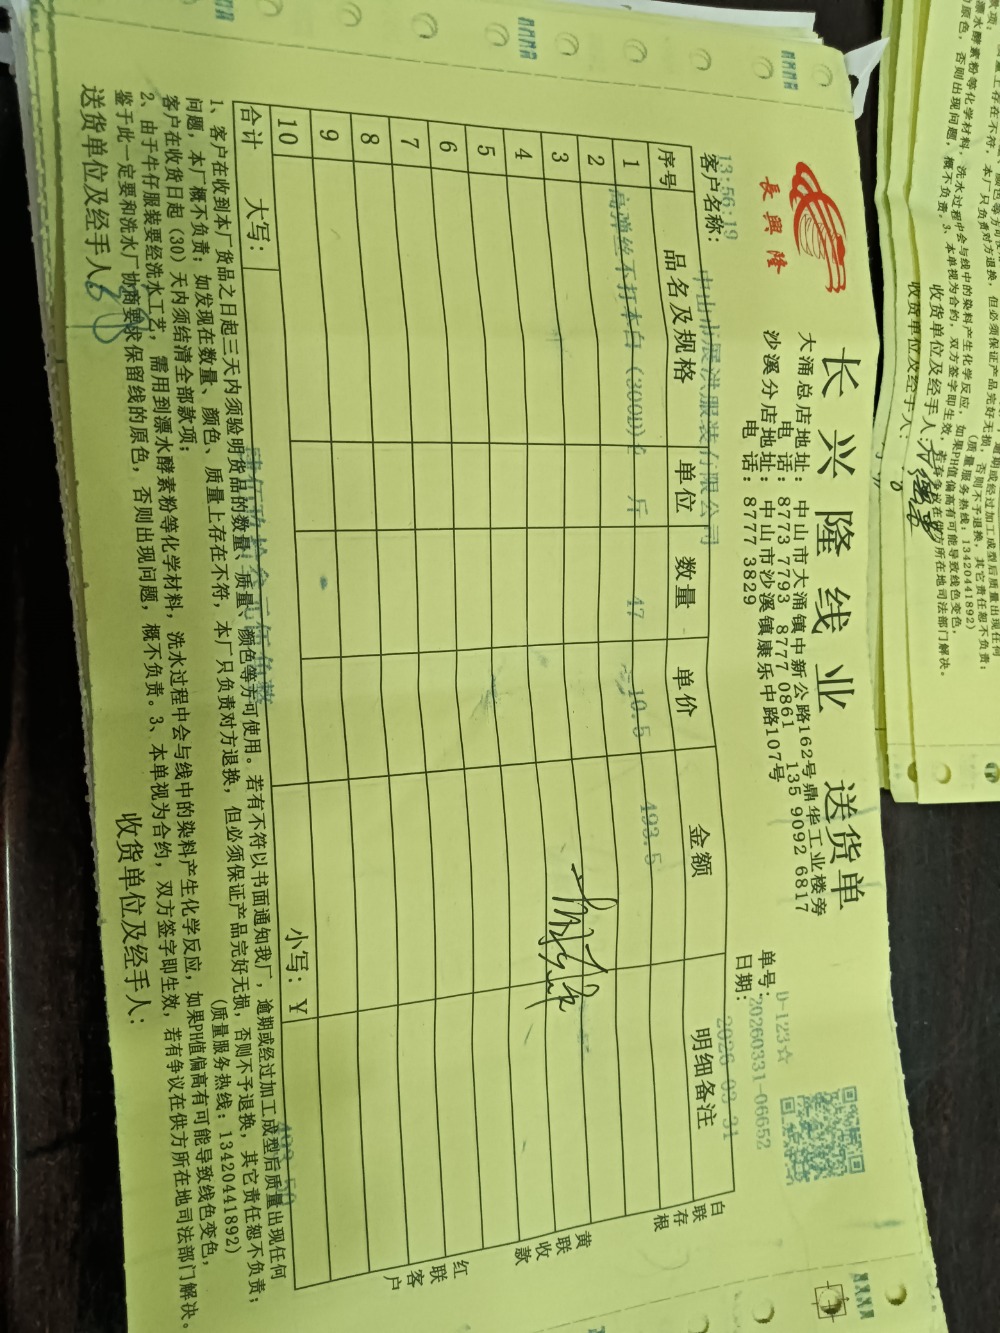 長興隆
长兴隆线业 送货单
大涌总店地址：中山市大涌镇中新公路162号鼎华工业楼旁
电 话：8773 7793 8777 0861 135 9092 6817
沙溪分店地址：中山市沙溪镇康乐中路107号
电 话：8777 3829
D-123☆
单号：20260331-06652
日期：2026-03-31
13:56:19
客户名称：中山市展洪服装有限公司
序号 品名及规格 单位 数量 单价 金额 明细备注
1 高弹丝不打本白（300D） 斤 47 10.5 493.5
2
3
4
5
6
7
8
9
10
合计 大写： 小写：￥
白联存根
黄联收款
红联客户
1、客户在收到本厂货品之日起三天内须验明货品的数量、质量、颜色等方可使用。若有不符以书面通知我厂，逾期或经过加工成型后质量出现任何
问题，本厂概不负责；如发现在数量、颜色、质量上存在不符，本厂只负责对方退换，但必须保证产品完好无损，否则不予退换，其它责任恕不负责；
客户在收货日起（30）天内须结清全部款项； （质量服务热线：13420441892）
2、由于牛仔服装要经洗水工艺，需用到漂水酵素粉等化学材料，洗水过程中会与线中的染料产生化学反应，如果PH值偏高有可能导致线色变色，
鉴于此一定要和洗水厂协商要求保留线的原色，否则出现问题，概不负责。3、本单视为合约，双方签字即生效，若有争议在供方所在地司法部门解决。
送货单位及经手人： 收货单位及经手人：
收货单位及经手人：